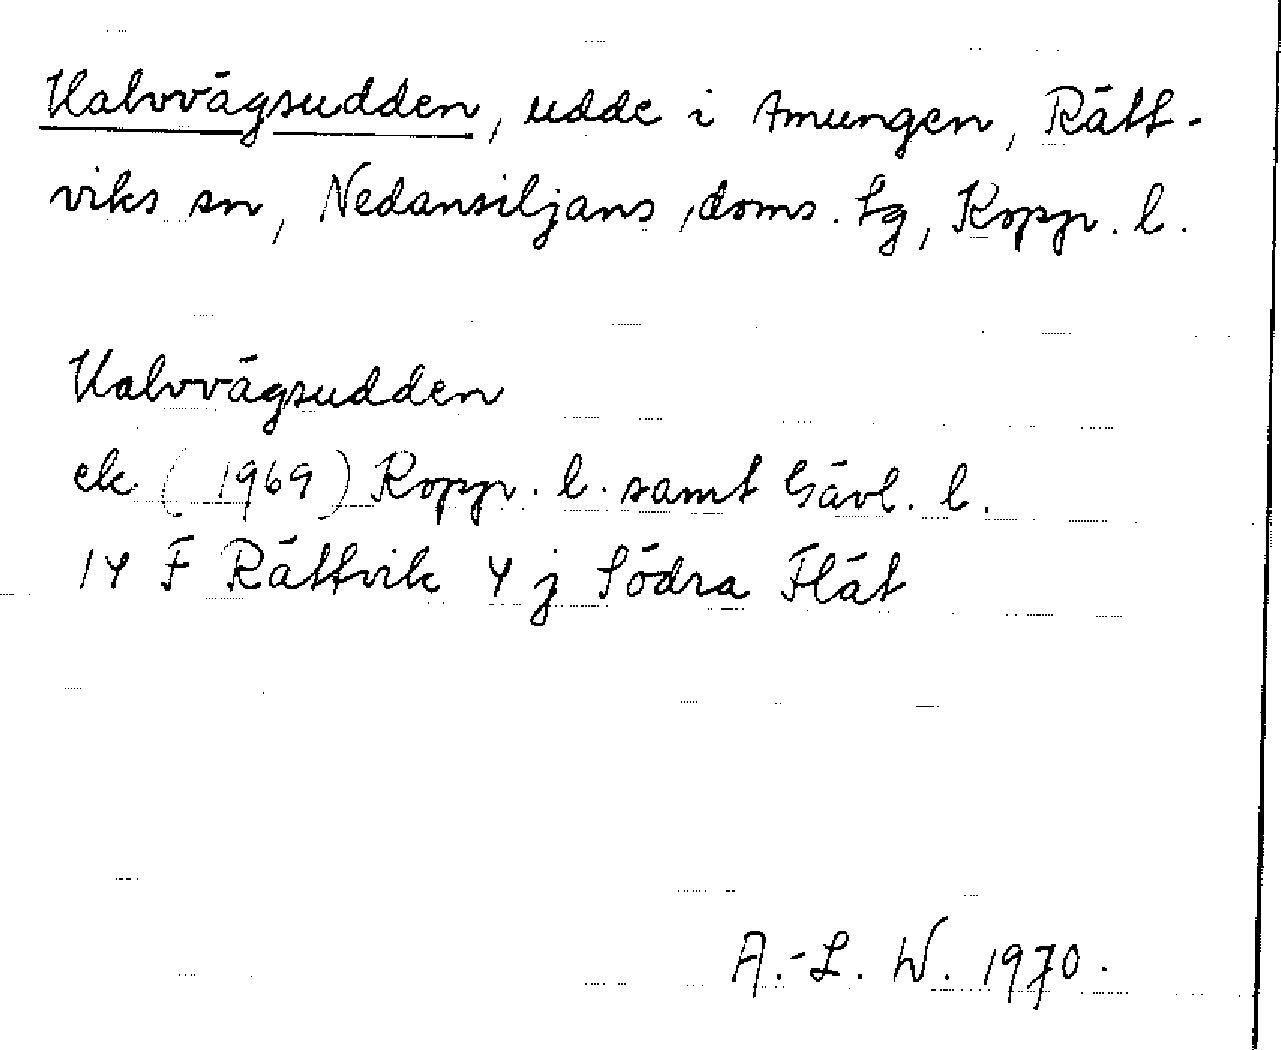 Kalvvägsudden, udde i Amungen, Rätt-
viks sn, Nedansiljans doms. lg, Kopp. l.
Kalvvägsudden
ek (1969) Kopp. l. samt Gävl. l.
14 F Rättvik 4 j Södra Flät
A.-L. W. 1970.